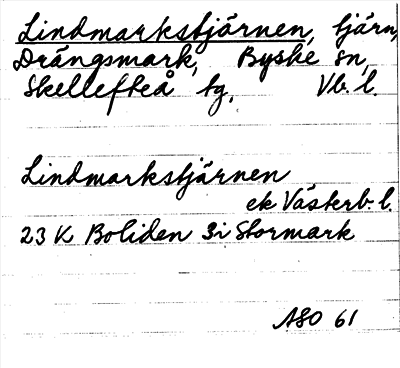 Lindmarkstjärnen, tjärn,
Drängsmark, Byske sn,
Skellefteå tg, Vb. l.
Lindmarkstjärnen
ek Västerb. l.
23 K Boliden 3i Stormark
ASO 61